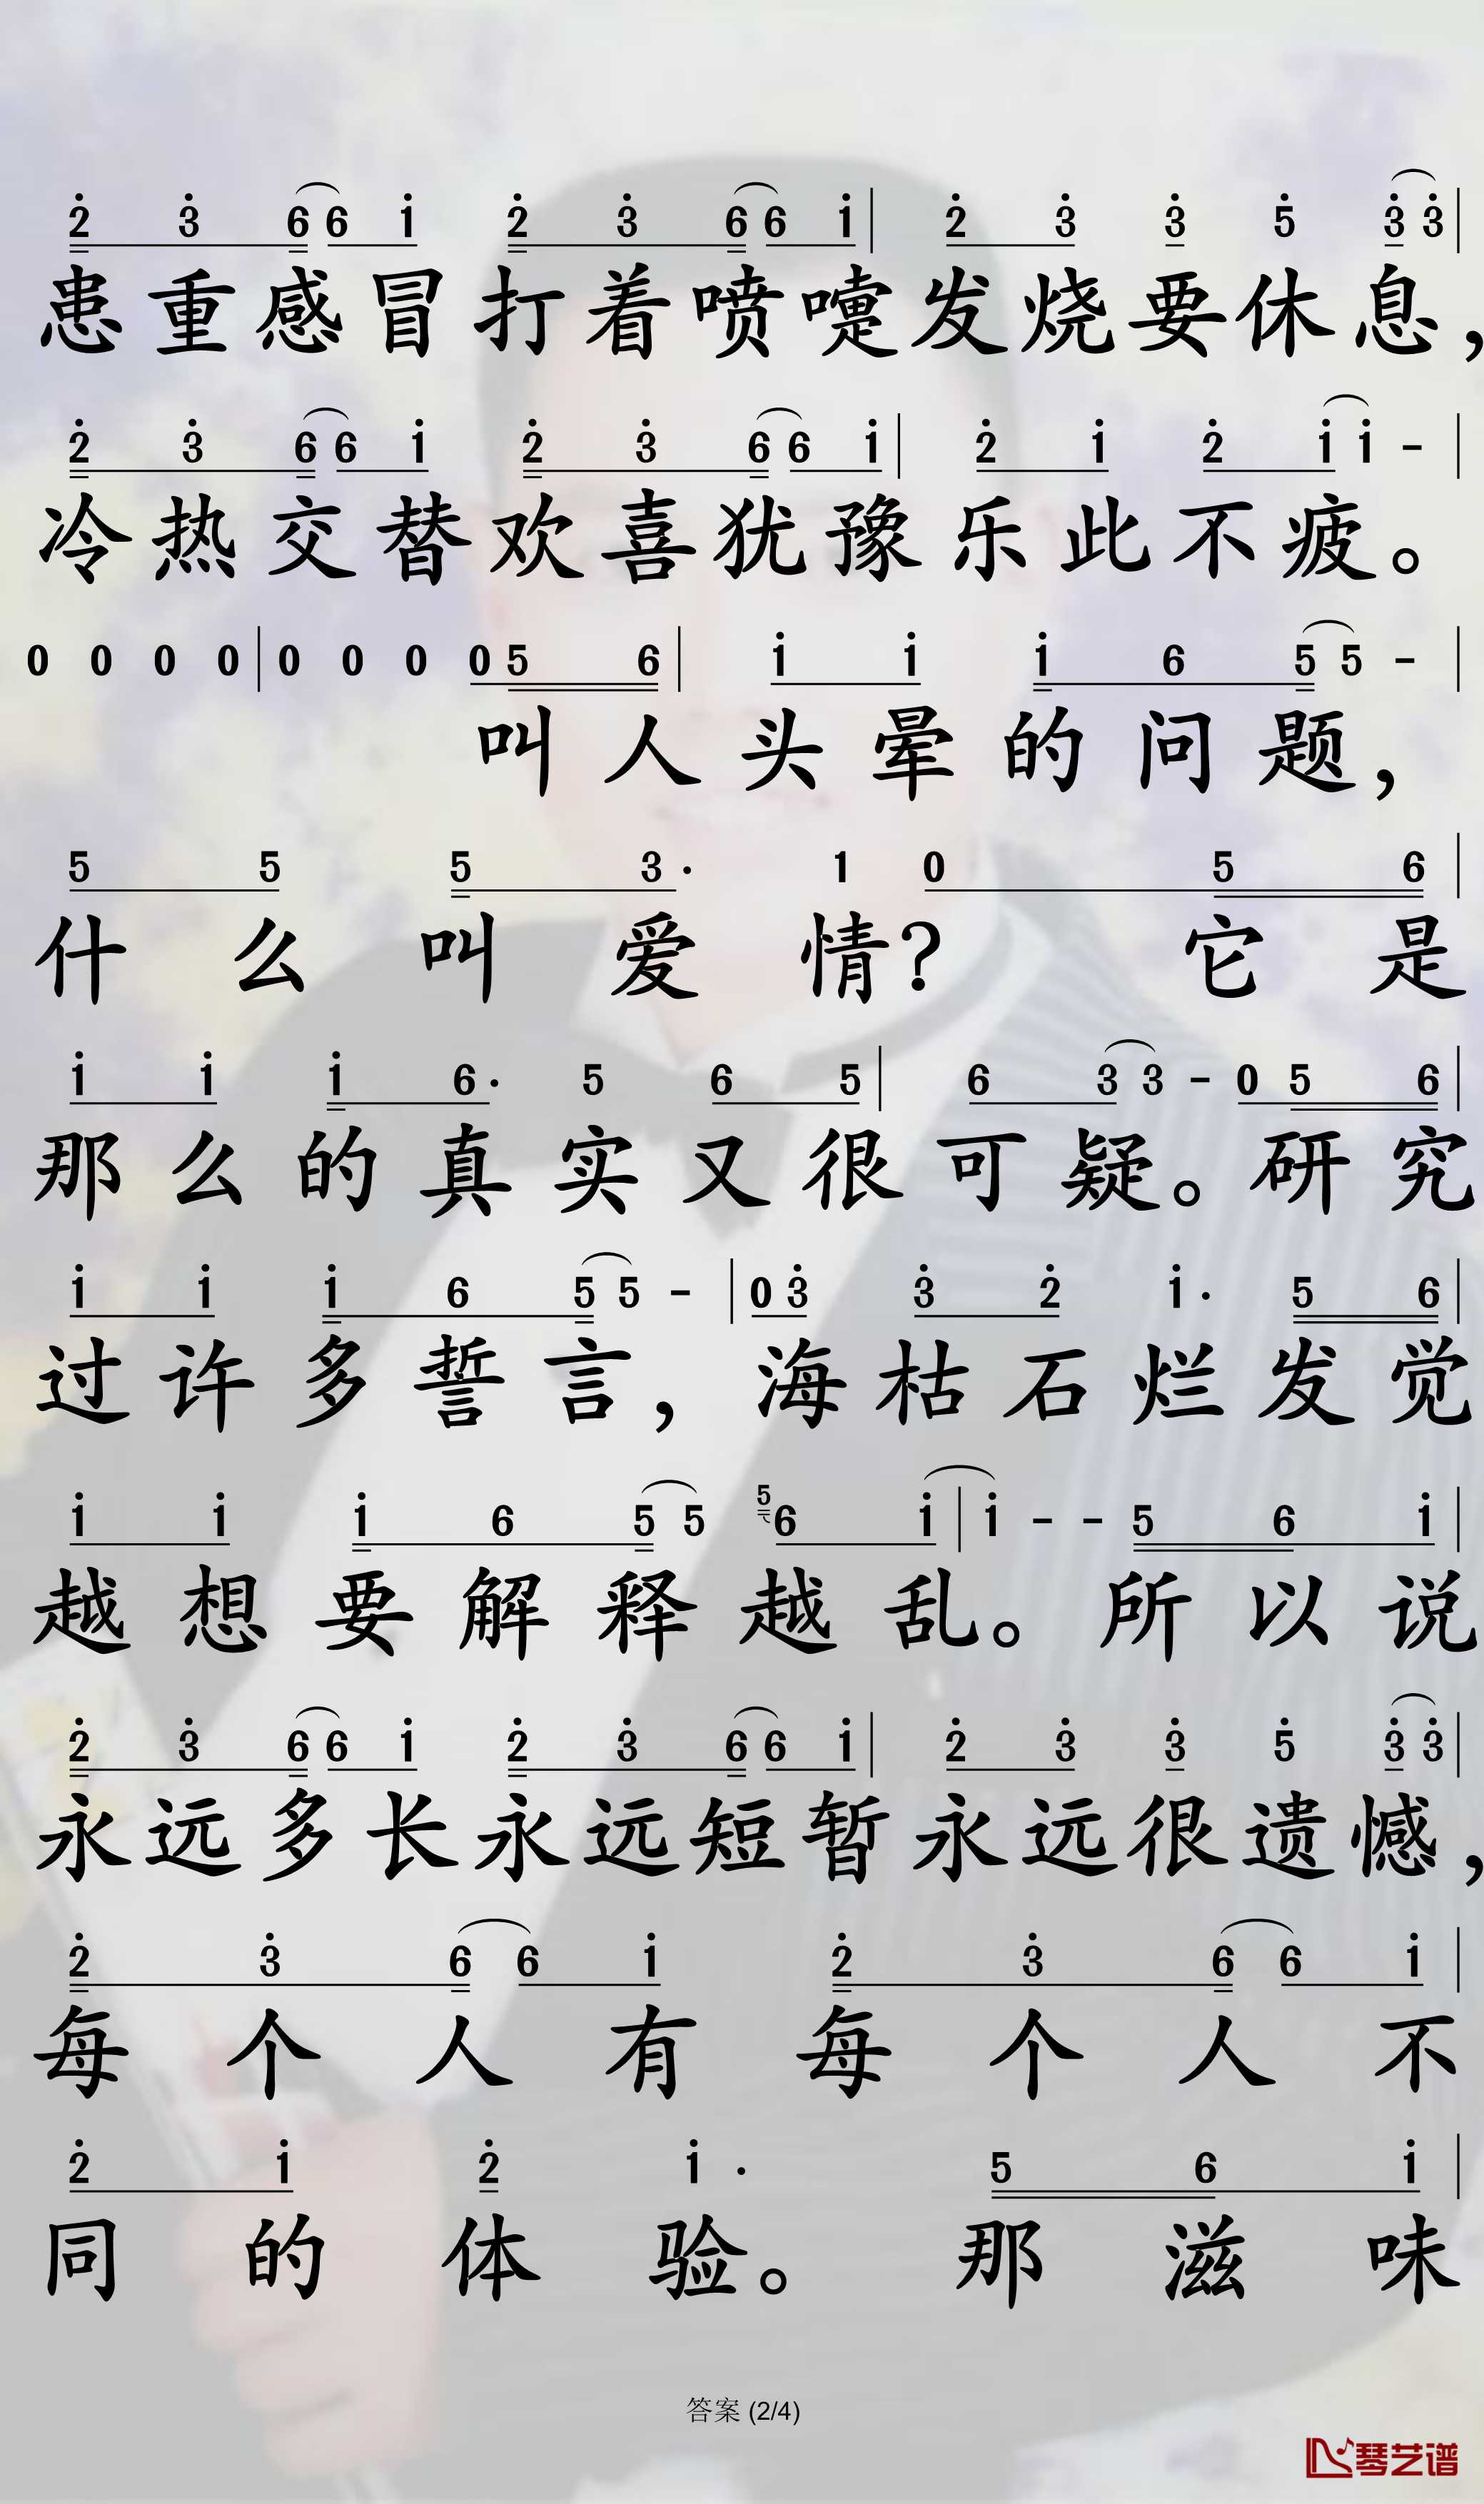 2 3 6 6 1 2 3 6 6 1 | 2 3 3 5 3 3 |
患重感冒打着喷嚏发烧要休息，
2 3 6 6 1 2 3 6 6 1 | 2 1 2 1 1 - |
冷热交替欢喜犹豫乐此不疲。
0 0 0 0 | 0 0 0 0 5 6 | 1 1 1 6 5 5 - |
叫人头晕的问题，
5 5 5 3· 1 0 5 6 |
什么叫爱情？它是
1 1 1 6· 5 6 5 | 6 3 3 - 0 5 6 |
那么的真实又很可疑。研究
1 1 1 6 5 5 - | 0 3 3 2 1· 5 6 |
过许多誓言，海枯石烂发觉
1 1 1 6 5 5 5 6 1 | 1 - - 5 6 1 |
越想要解释越乱。所以说
2 3 6 6 1 2 3 6 6 1 | 2 3 3 5 3 3 |
永远多长永远短暂永远很遗憾，
2 3 6 6 1 2 3 6 6 1 |
每个人有每个人不
2 1 2 1· 5 6 1 |
同的体验。那滋味
答案 (2/4)
琴艺谱